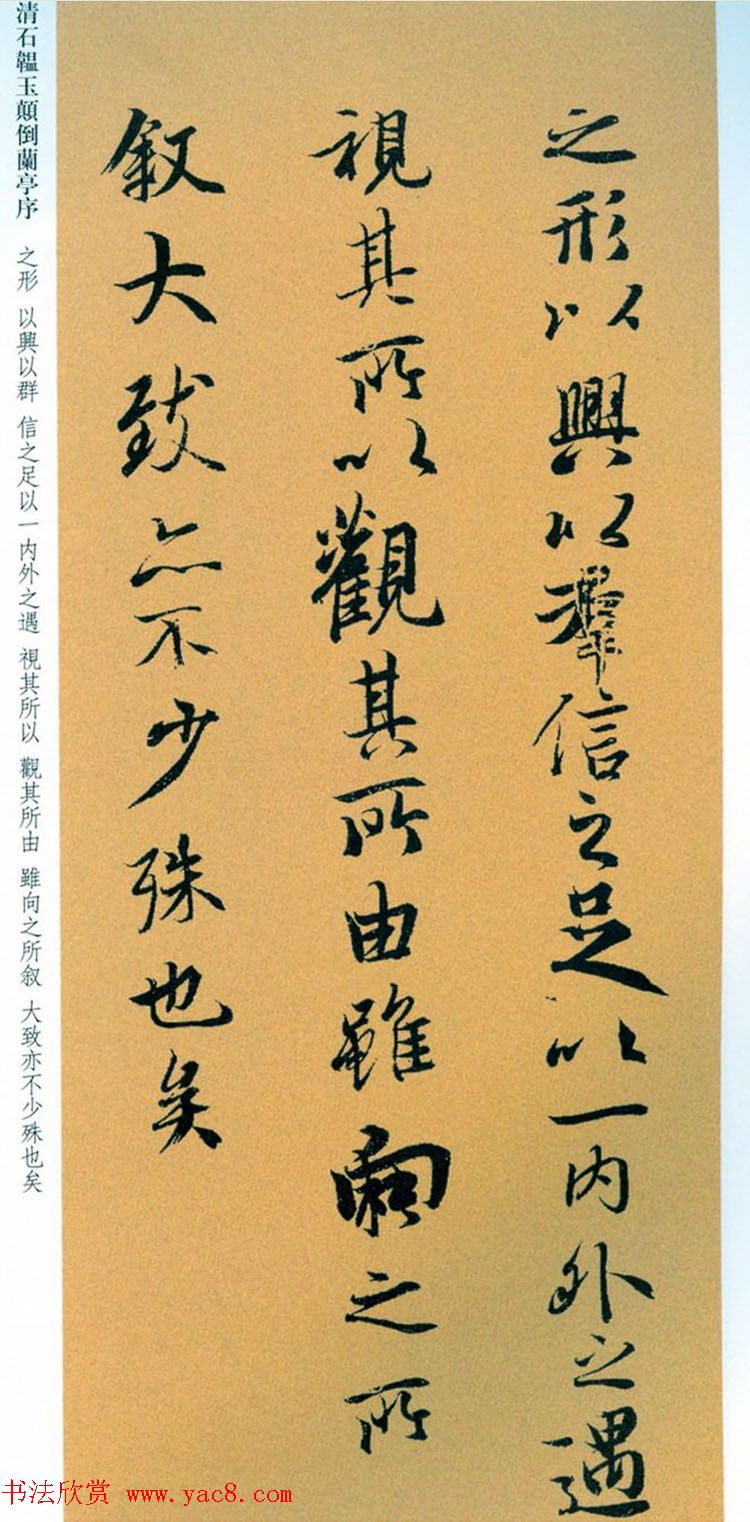 之形以興以羣信之足以一内外之遇
視其所以觀其所由雖向之所
叙大致亦不少殊也矣
清石韞玉顛倒蘭亭序 之形 以興以群 信之足以一内外之遇 視其所以 觀其所由 雖向之所叙 大致亦不少殊也矣
书法欣赏 www.yac8.com